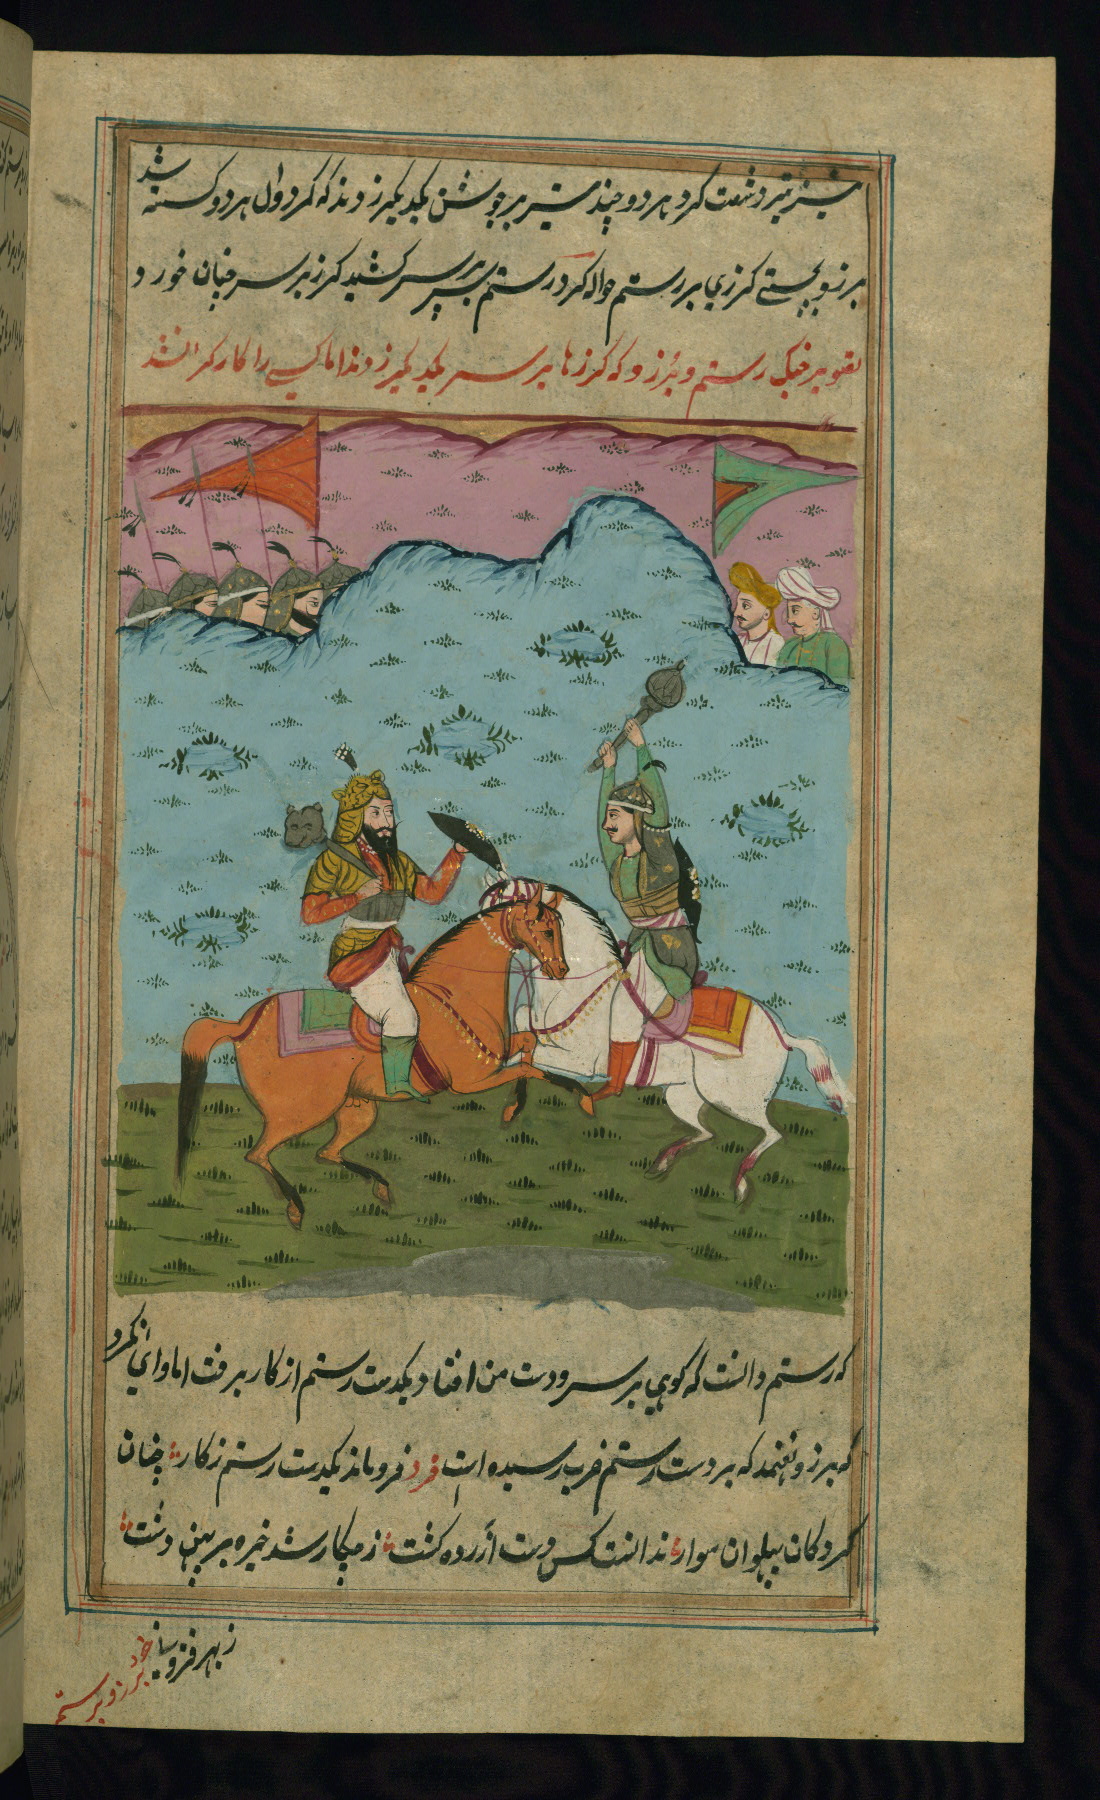 شیر تیر و شصت کرد هر دو چند تیر بر جوشن یکدیگر زدند که کمر دوال هر دو کسته شد
برزو بچستی کرزی بر رستم حواله کرد رستم سپر بر سر کشید کرز بر سر چنان خورد و
تصویر جنک رستم و برزو که کرزها بر سر یکدیگر زدند اما کسی را کارکر نشد
که رستم دانست که کوهی بر سر و دست من افتاد یکدست رستم از کار برفت اما وای نکرد
که برزو نفهمد که بر دست رستم ضرب رسیده است فرد فروماند یکدست رستم ز کار چنان
کرد کان پهلوان سوار ندانست کس دست آزرده کشت ز پیکار شد خیره بر پهن دشت
ز بهر فزو
برزو بر رستم